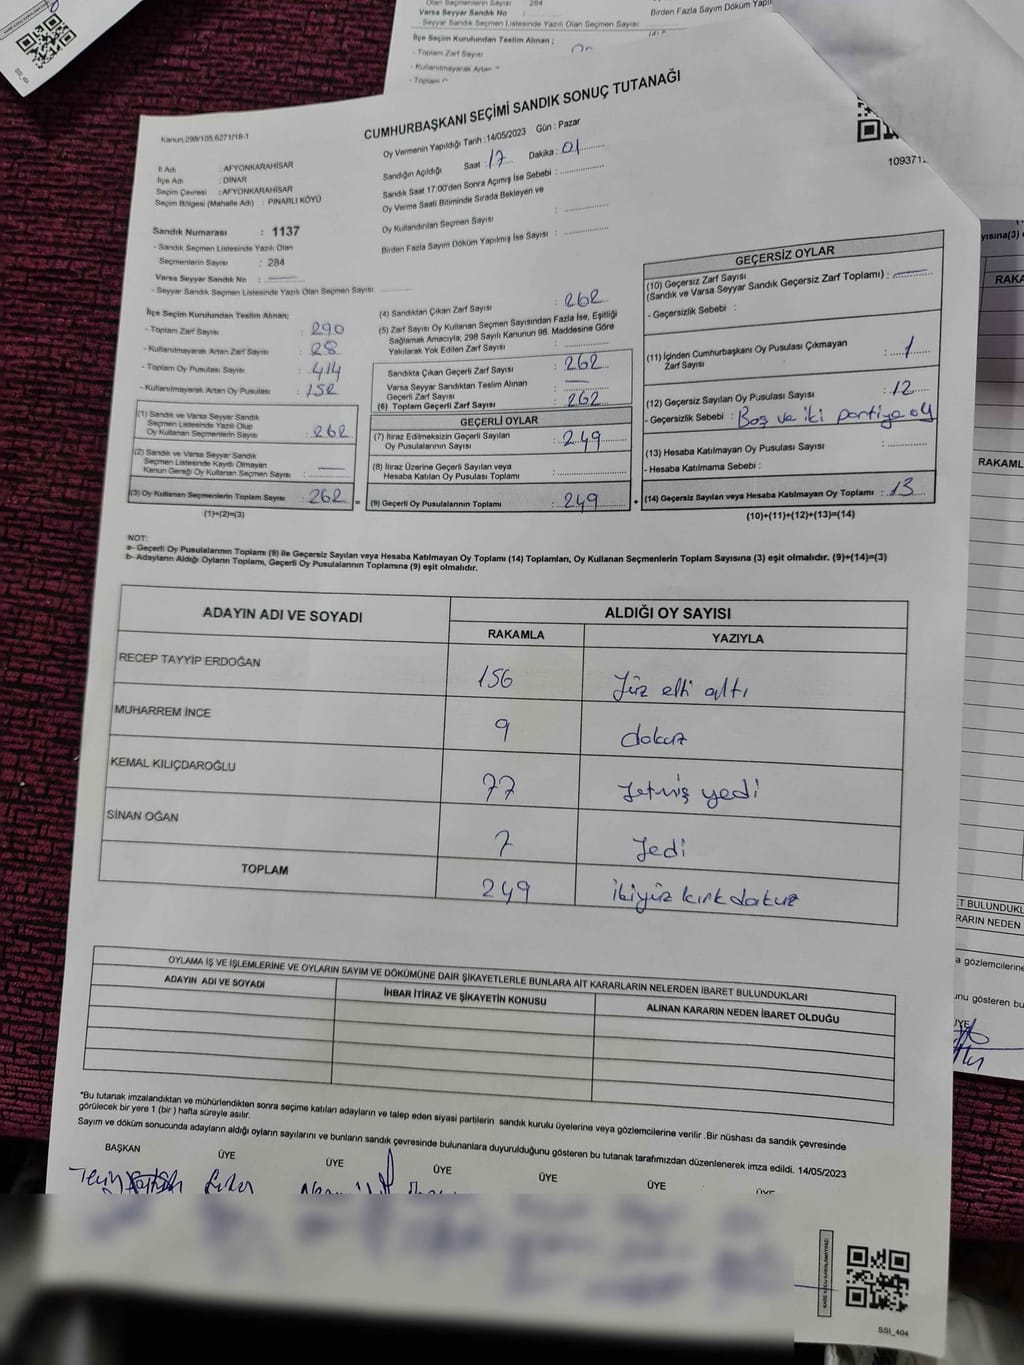 Varsa Seyyar Sandık No
- Seyyar Sandık Seçmen Listesinde Yazılı Olan Seçmen Sayısı:
Birden Fazla Sayım Döküm
İlçe Seçim Kurulundan Teslim Alınan;
- Toplam Zarf Sayısı
- Kullanılmayarak Artan
Kanun: 298/105;6271/18-1
CUMHURBAŞKANI SEÇİMİ SANDIK SONUÇ TUTANAĞI
Oy Vermenin Yapıldığı Tarih : 14/05/2023 Gün : Pazar
Sandığın Açıldığı Saat : 17 Dakika : 01
Sandık Saat 17.00'den Sonra Açımış İse Sebebi :
Oy Verme Saati Bitiminde Sırada Bekleyen ve
Oy Kullandırılan Seçmen Sayısı :
Birden Fazla Sayım Döküm Yapılmış İse Sayısı :
İl Adı : AFYONKARAHİSAR
İlçe Adı : DİNAR
Seçim Çevresi : AFYONKARAHİSAR
Seçim Bölgesi (Mahalle Adı) : PINARLI KÖYÜ
109371
Sandık Numarası : 1137
- Sandık Seçmen Listesinde Yazılı Olan
Seçmenlerin Sayısı : 284
Varsa Seyyar Sandık No :
- Seyyar Sandık Seçmen Listesinde Yazılı Olan Seçmen Sayısı:
İlçe Seçim Kurulundan Teslim Alınan;
- Toplam Zarf Sayısı : 290
- Kullanılmayarak Artan Zarf Sayısı : 28
- Toplam Oy Pusulası Sayısı : 414
- Kullanılmayarak Artan Oy Pusulası : 152
(1) Sandık ve Varsa Seyyar Sandık
Seçmen Listesinde Yazılı Olup
Oy Kullanan Seçmenlerin Sayısı : 262
(2) Sandık ve Varsa Seyyar Sandık
Seçmen Listesinde Kayıtlı Olmayan
Kanun Gereği Oy Kullanan Seçmen Sayısı : —
(3) Oy Kullanan Seçmenlerin Toplam Sayısı : 262
(1)+(2)=(3)
(4) Sandıktan Çıkan Zarf Sayısı : 262
(5) Zarf Sayısı Oy Kullanan Seçmen Sayısından Fazla İse, Eşitliği
Sağlamak Amacıyla; 298 Sayılı Kanunun 98. Maddesine Göre
Yakılarak Yok Edilen Zarf Sayısı :
Sandıkta Çıkan Geçerli Zarf Sayısı : 262
Varsa Seyyar Sandıktan Teslim Alınan
Geçerli Zarf Sayısı : —
(6) Toplam Geçerli Zarf Sayısı : 262
GEÇERLİ OYLAR
(7) İtiraz Edilmeksizin Geçerli Sayılan
Oy Pusulasının Sayısı : 249
(8) İtiraz Üzerine Geçerli Sayılan veya
Hesaba Katılan Oy Pusulası Toplamı :
(9) Geçerli Oy Pusulalarının Toplamı : 249
GEÇERSİZ OYLAR
(10) Geçersiz Zarf Sayısı
(Sandık ve Varsa Seyyar Sandık Geçersiz Zarf Toplamı) : —
- Geçersizlik Sebebi :
(11) İçinden Cumhurbaşkanı Oy Pusulası Çıkmayan
Zarf Sayısı : 1
(12) Geçersiz Sayılan Oy Pusulası Sayısı : 12
- Geçersizlik Sebebi : Boş ve iki partiye oy
(13) Hesaba Katılmayan Oy Pusulası Sayısı :
- Hesaba Katılmama Sebebi :
(14) Geçersiz Sayılan veya Hesaba Katılmayan Oy Toplamı : 13
(10)+(11)+(12)+(13)=(14)
NOT:
a- Geçerli Oy Pusulalarının Toplamı (9) ile Geçersiz Sayılan veya Hesaba Katılmayan Oy Toplamı (14) Toplamları, Oy Kullanan Seçmenlerin Toplam Sayısına (3) eşit olmalıdır. (9)+(14)=(3)
b- Adayların Aldığı Oyların Toplamı, Geçerli Oy Pusulalarının Toplamına (9) eşit olmalıdır.
ADAYIN ADI VE SOYADI ALDIĞI OY SAYISI
RAKAMLA YAZIYLA
RECEP TAYYİP ERDOĞAN 156 Yüz elli altı
MUHARREM İNCE 9 dokuz
KEMAL KILIÇDAROĞLU 77 Yetmiş yedi
SİNAN OĞAN 7 Yedi
TOPLAM 249 ikiyüz kırk dokuz
OYLAMA İŞ VE İŞLEMLERİNE VE OYLARIN SAYIM VE DÖKÜMÜNE DAİR ŞİKAYETLERLE BUNLARA AİT KARARLARIN NELERDEN İBARET BULUNDUKLARI
ADAYIN ADI VE SOYADI İHBAR İTİRAZ VE ŞİKAYETİN KONUSU ALINAN KARARIN NEDEN İBARET OLDUĞU
*Bu tutanak imzalandıktan ve mühürlendikten sonra seçime katılan adayların ve talep eden siyasi partilerin sandık kurulu üyelerine veya gözlemcilerine verilir .Bir nüshası da sandık çevresinde
görülecek bir yere 1 (bir ) hafta süreyle asılır.
Sayım ve döküm sonucunda adayların aldığı oyların sayılarını ve bunların sandık çevresinde bulunanlara duyurulduğunu gösteren bu tutanak tarafımızdan düzenlenerek imza edildi. 14/05/2023
BAŞKAN ÜYE ÜYE ÜYE ÜYE ÜYE ÜYE
SSI_404